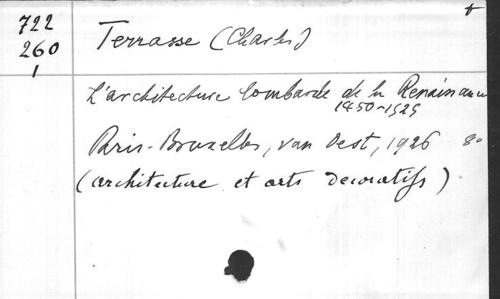 722
260
1
Terrasse (Charles)
L'architecture lombarde de la Renaissance
1450-1525
Paris-Bruxelles, van Oest, 1926 8°
(architecture et arts decoratifs)